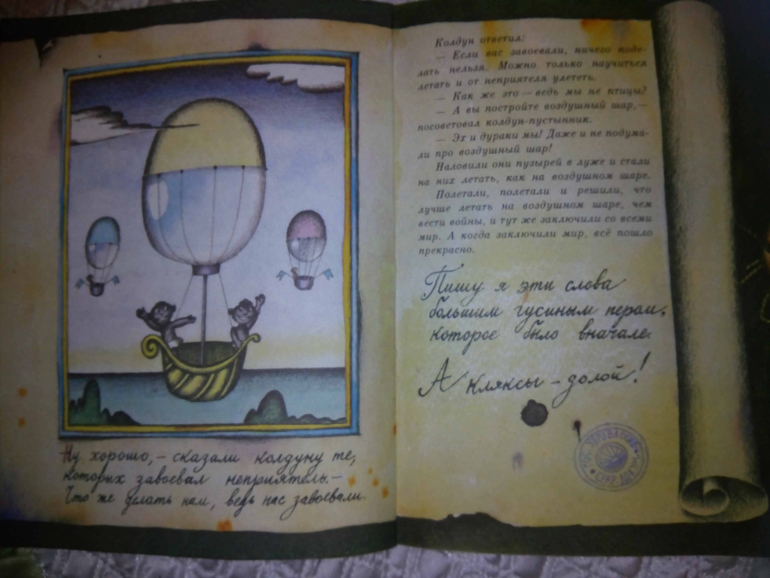 Ну хорошо,— сказали колдуну те,
которых завоевал неприятель.—
Что же делать нам, ведь нас завоевали.
Колдун ответил:
— Если вас завоевали, ничего поде-
лать нельзя. Можно только научиться
летать и от неприятеля улететь.
— Как же это — ведь мы не птицы?
— А вы постройте воздушный шар,—
посоветовал колдун-пустынник.
— Эх и дураки мы! Даже и не подума-
ли про воздушный шар!
Наловили они пузырей в луже и стали
на них летать, как на воздушном шаре.
Полетали, полетали и решили, что
лучше летать на воздушном шаре, чем
вести войны, и тут же заключили со всеми
мир. А когда заключили мир, всё пошло
прекрасно.
Пишу я эти слова
большим гусиным пером,
которое было вначале.
А кляксы — долой!